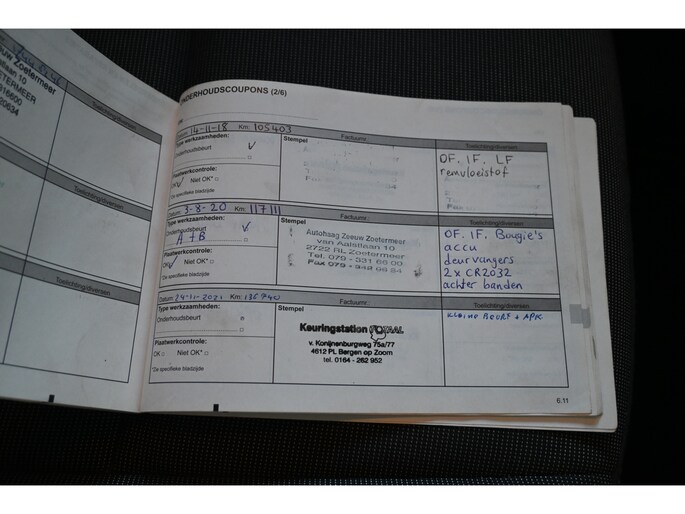 uw Zoetermeer
laan 10
ETERMEER
316600
20634
Toelichting/diversen
Toelichting/diversen
Toelichting/diversen
ONDERHOUDSCOUPONS (2/6)
Datum: 14-11-18 Km: 105403 Factuurnr.: Toelichting/diversen
Type werkzaamheden: Stempel
Onderhoudsbeurt ✓
OF. IF. LF
remvloeistof
Plaatwerkcontrole:
OK ✓ Niet OK* □
*De specifieke bladzijde
Datum: 3-8-20 Km: 117111 Factuurnr.: Toelichting/diversen
Type werkzaamheden: Stempel
Onderhoudsbeurt ✓
A + B
Autohaag Zeeuw Zoetermeer
van Aalstlaan 10
2722 RL Zoetermeer
Tel. 079 - 331 66 00
Fax 079 - 342 06 34
OF. IF. Bougie's
accu
deurvangers
2 x CR2032
achter banden
Plaatwerkcontrole:
OK ✓ Niet OK* □
*De specifieke bladzijde
Datum: 24-11-2021 Km: 136740 Factuurnr.: Toelichting/diversen
Type werkzaamheden: Stempel
Onderhoudsbeurt
Keuringstation
v. Konijnenburgweg 75a/77
4612 PL Bergen op Zoom
tel. 0164 - 262 952
kleine BEURT + APK
Plaatwerkcontrole:
OK □ Niet OK* □
*De specifieke bladzijde
6.11